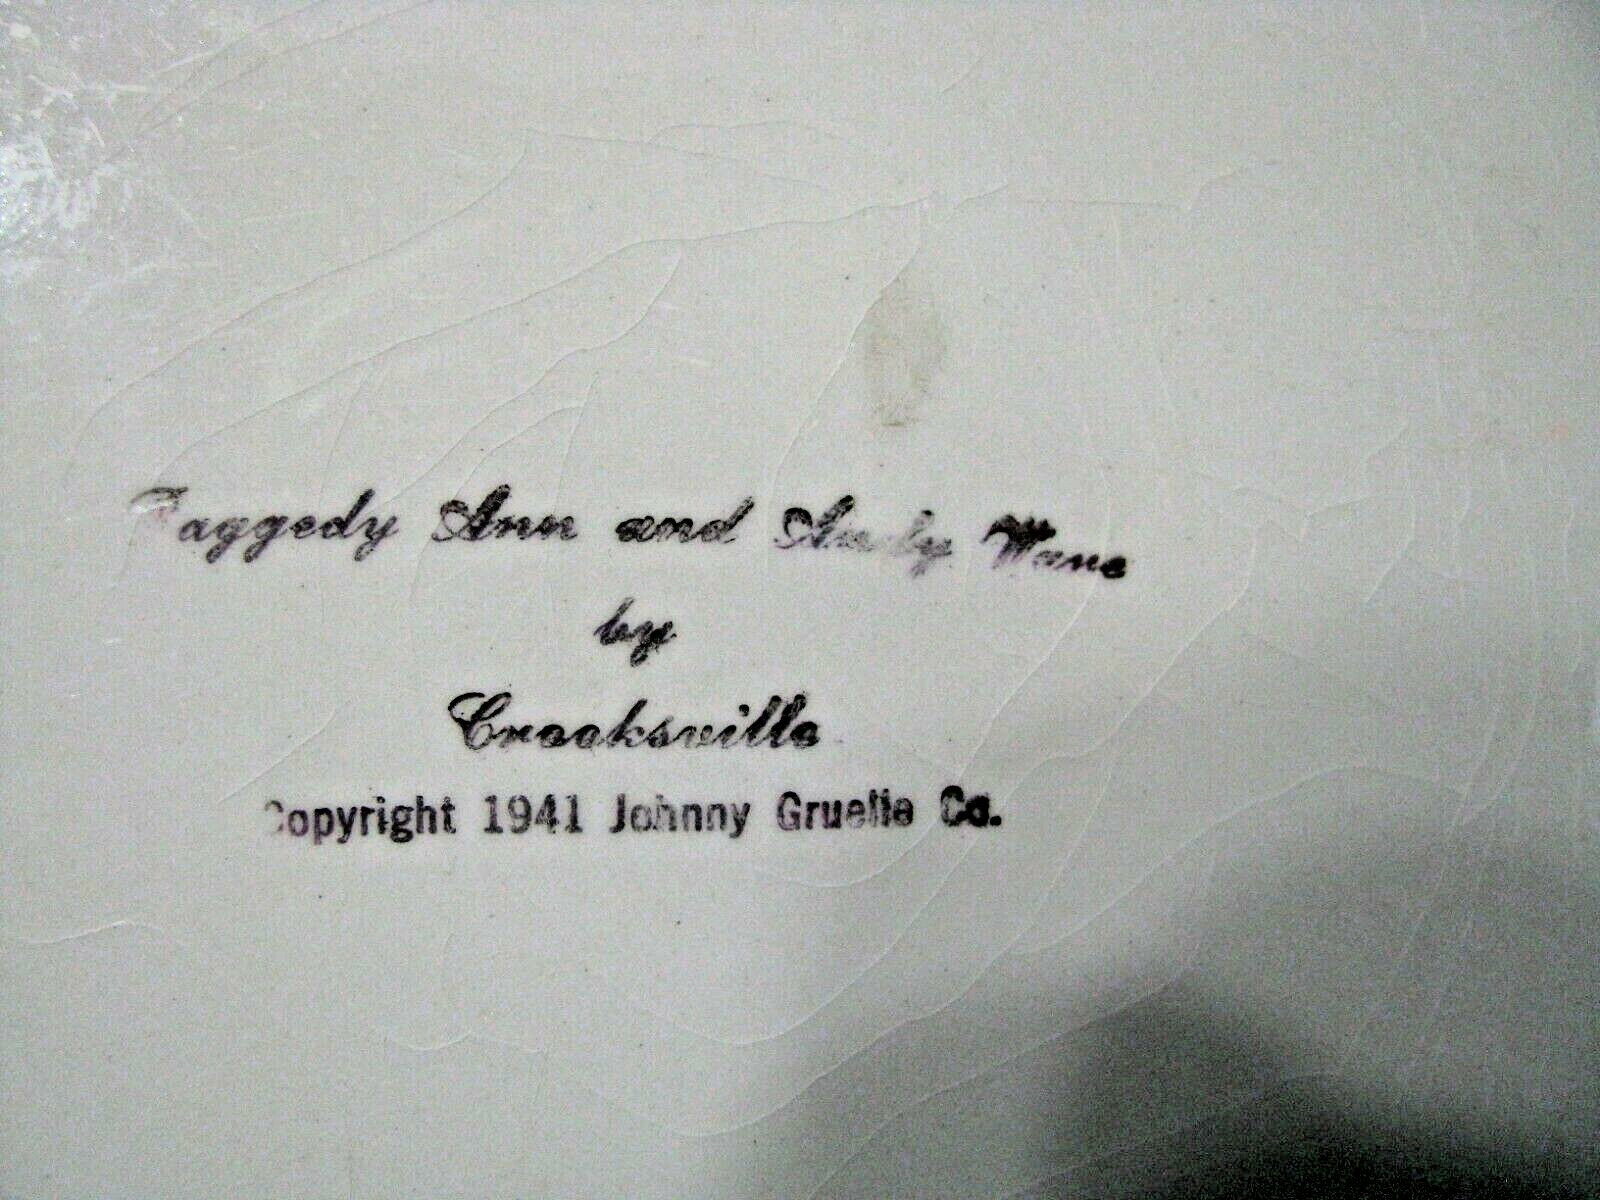 Raggedy Ann and Andy Ware
by
Crooksville
Copyright 1941 Johnny Gruelle Co.